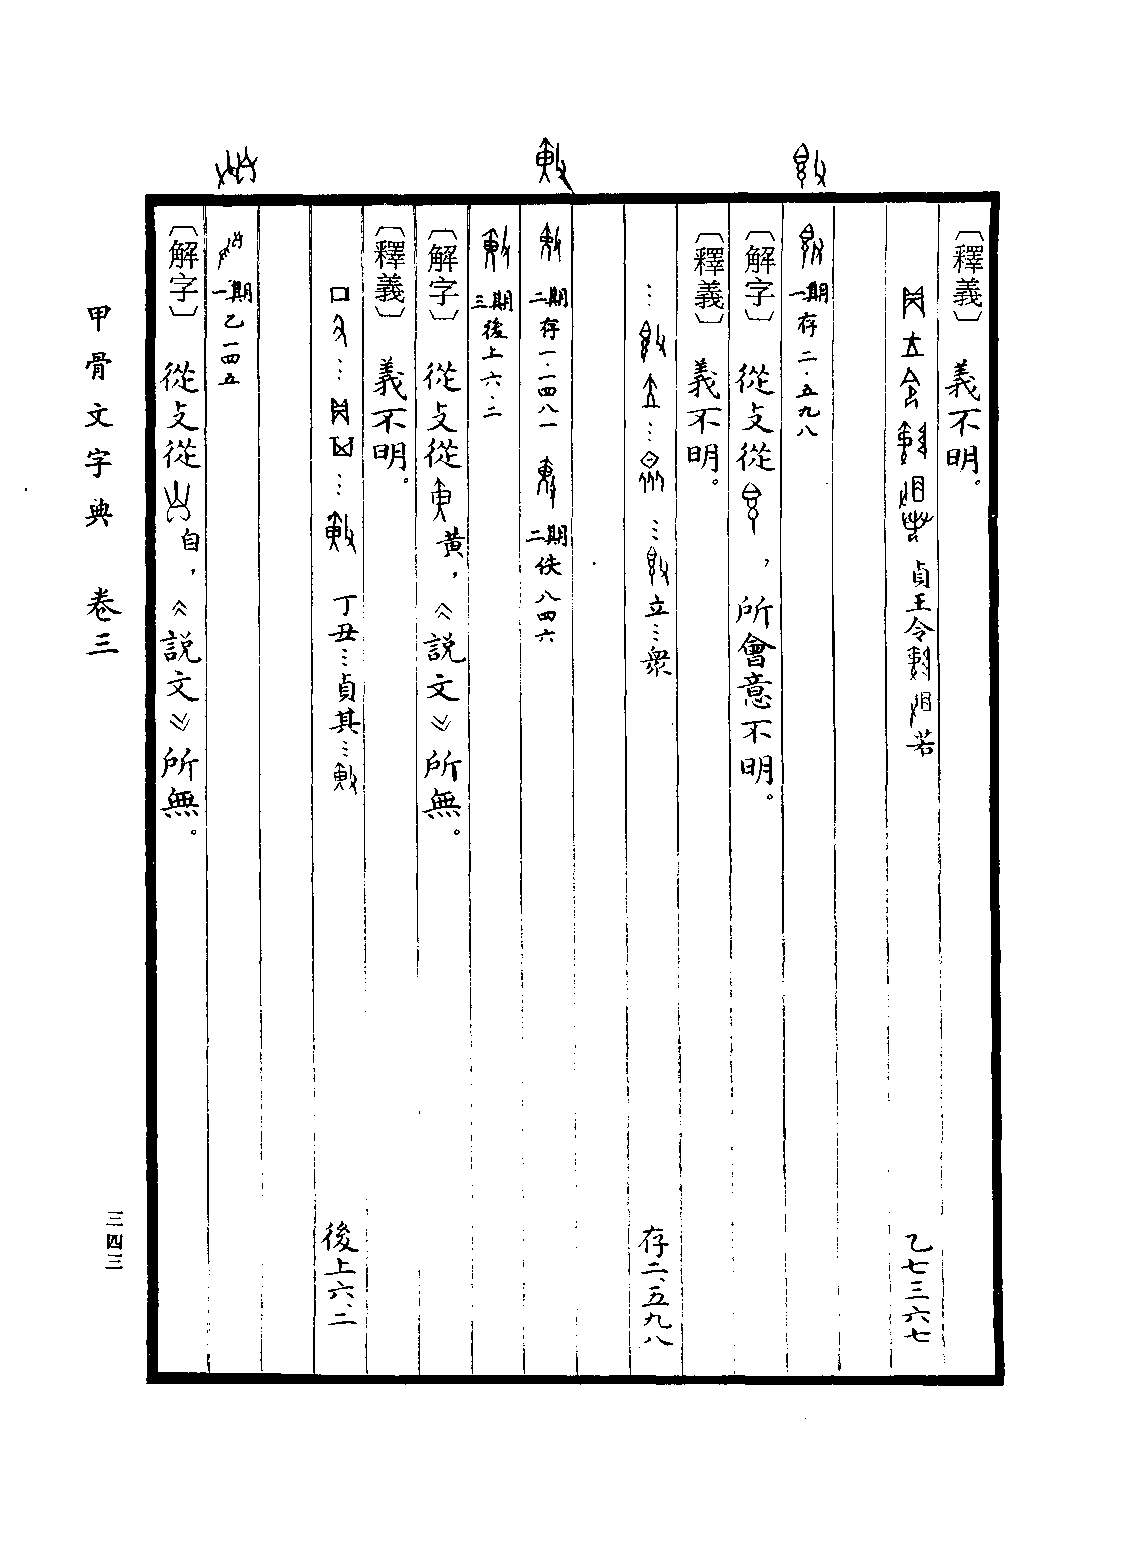 〔釋義〕 義不明。
貞王令若 乙七三六七
一期 存二·五九八
〔解字〕 從攴從，所會意不明。
〔釋義〕 義不明。
…………立…衆 存二、五九八
二期 存一·一四八一 二期 佚八四六
三期 後上六·二
〔解字〕 從攴從黃，《説文》所無。
〔釋義〕 義不明。
丁丑…貞其… 後上六、二
一期 乙一四五
〔解字〕 從攴從自，《説文》所無。
甲骨文字典 卷三
三四三